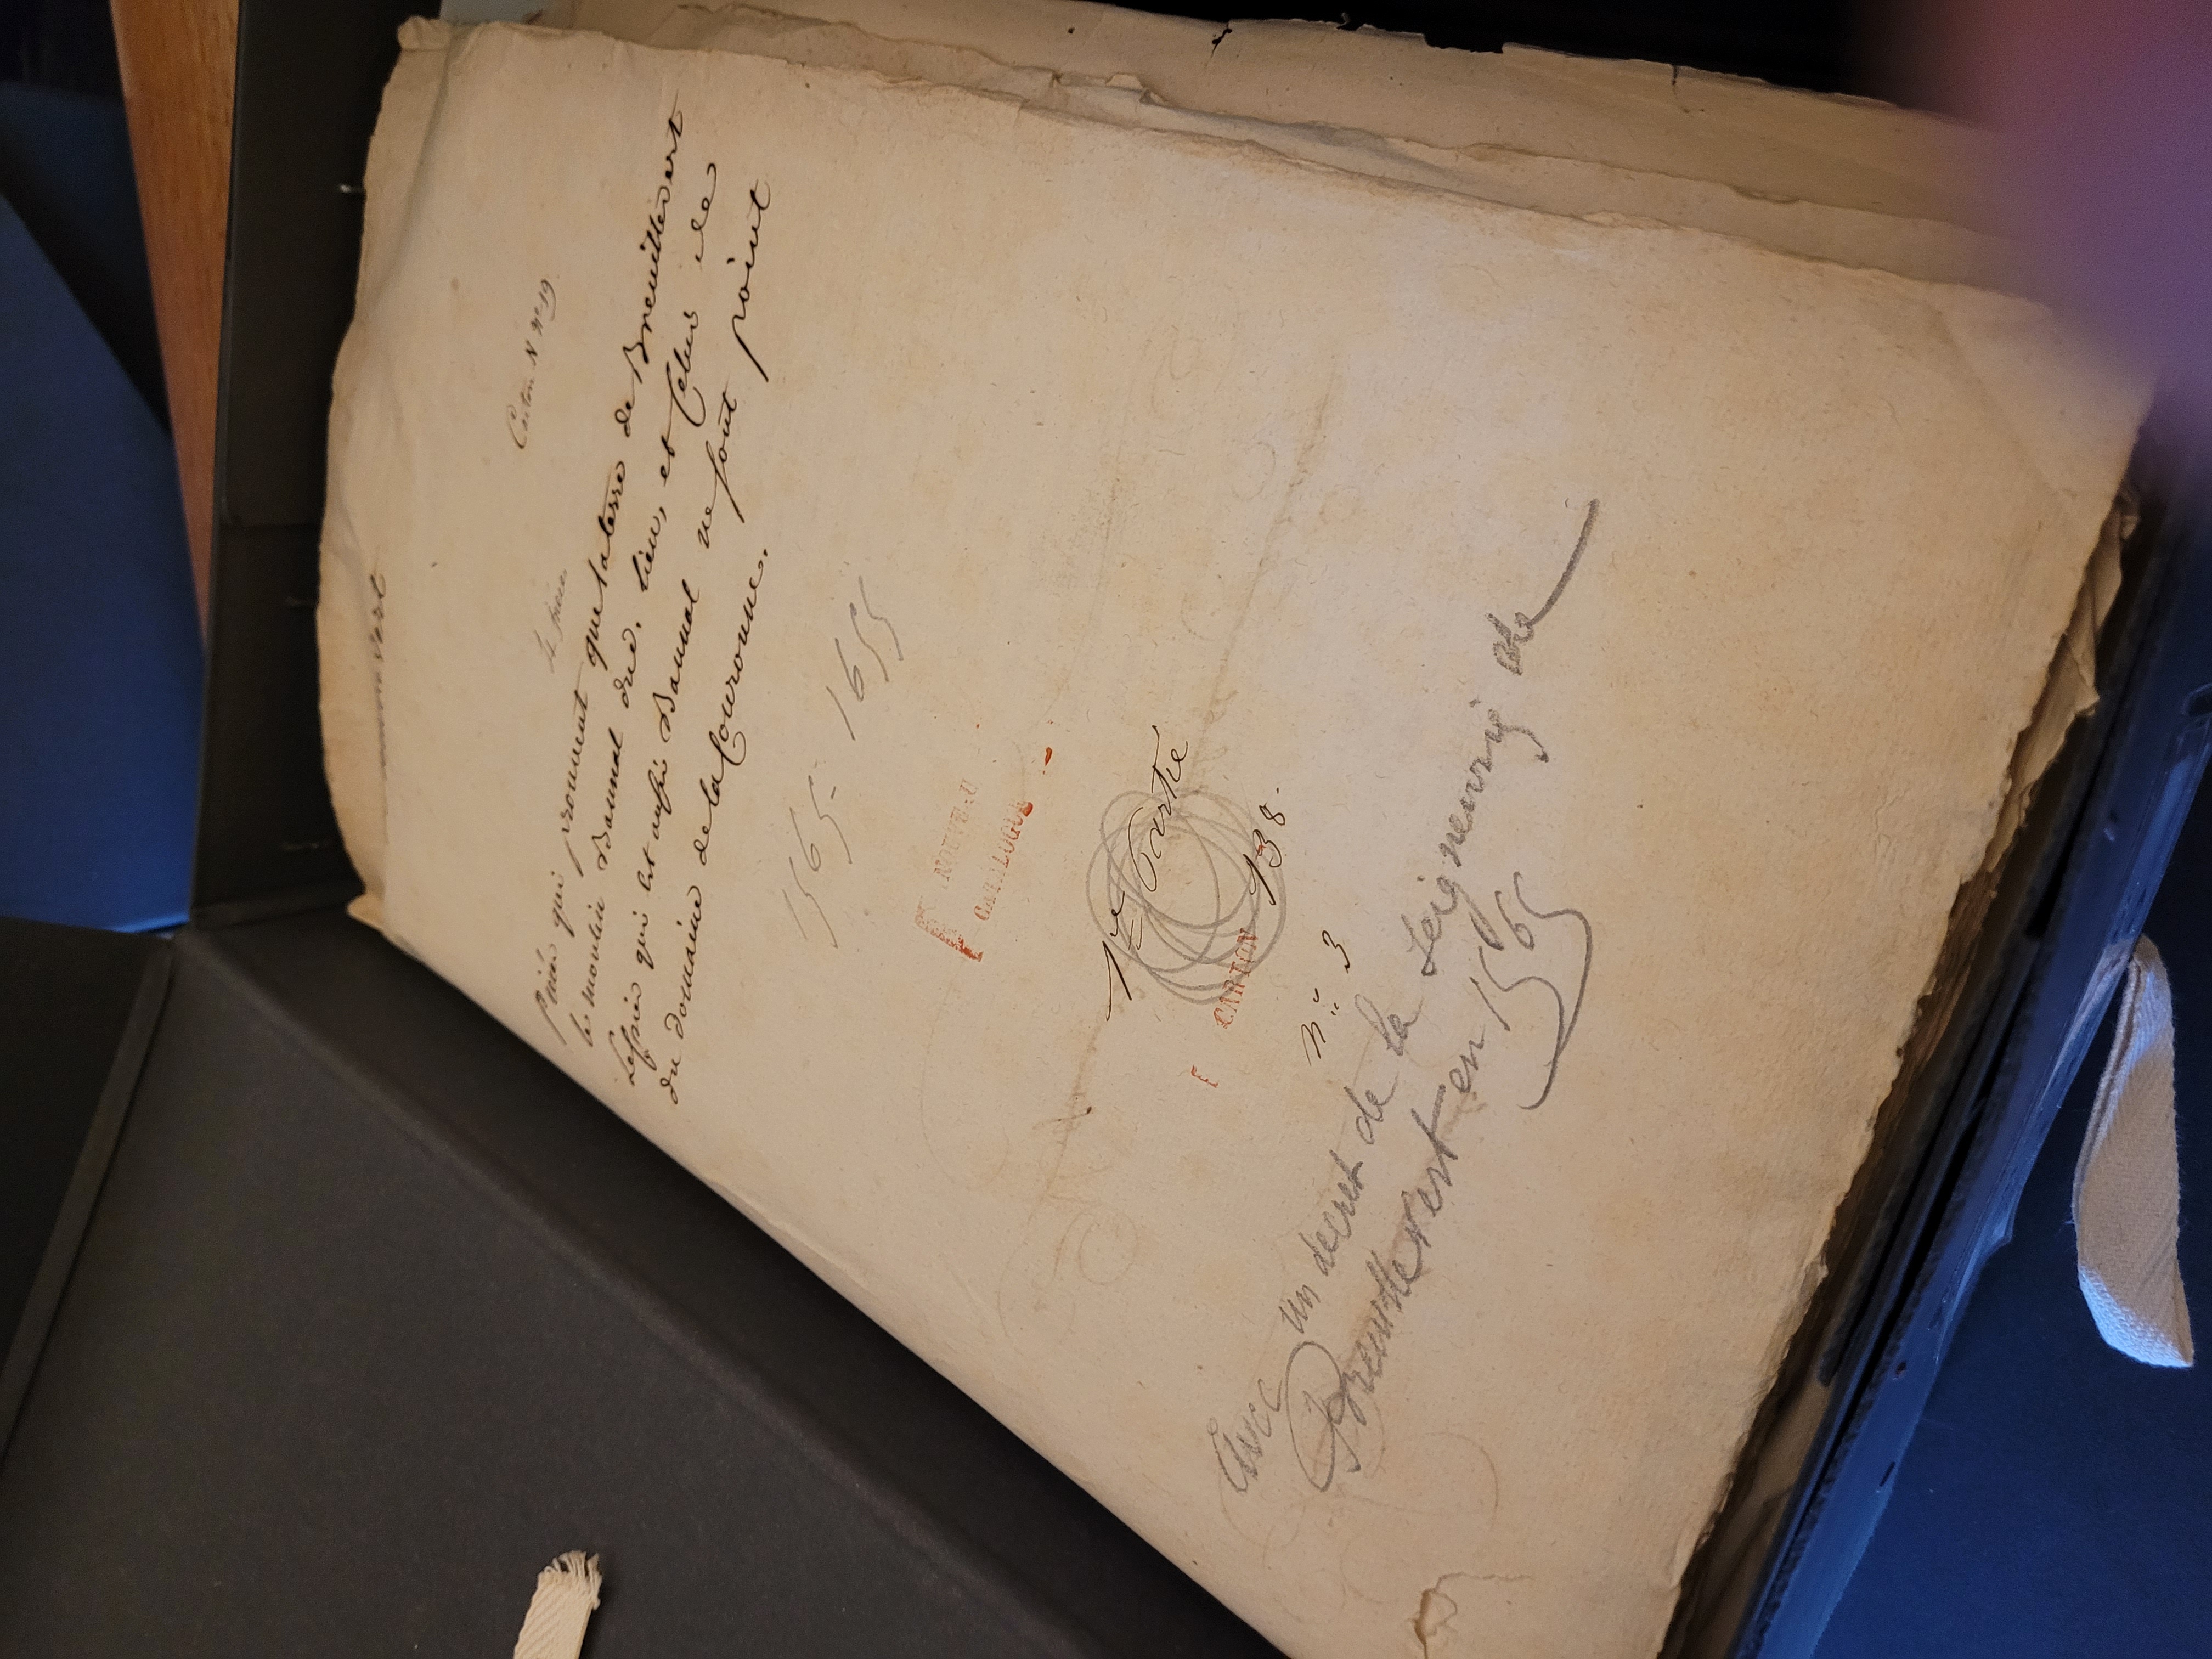 Carton N n° 19
Pieces qui prouvent que la terre de Breuillevert
le moulin Bannal dud. lieu, et Celuy de
qui est aussi Bannal ne font point
du domaine de la Couronne.
1565 - 1655
NOUVEAU
CATALOGUE
1re Partie
CARTON 138.
n° 3
Avec un decret de la Seigneurie de
Breuillevert en 1565